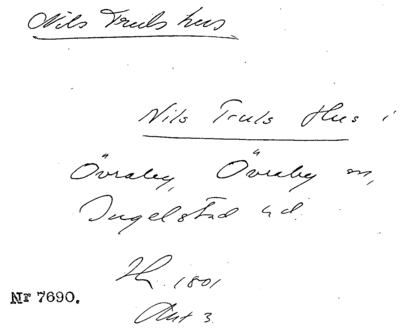 Nils Truls hus
Nils Truls Hus i
Övraby, Övraby sn,
Ingelstad hd.
1801
Akt 3.
Nr 7690.